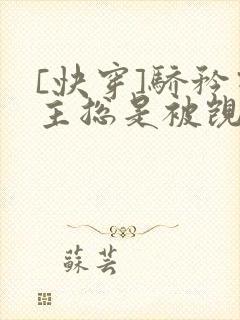 [快穿]驕矜
主總是被覬
蘇芸